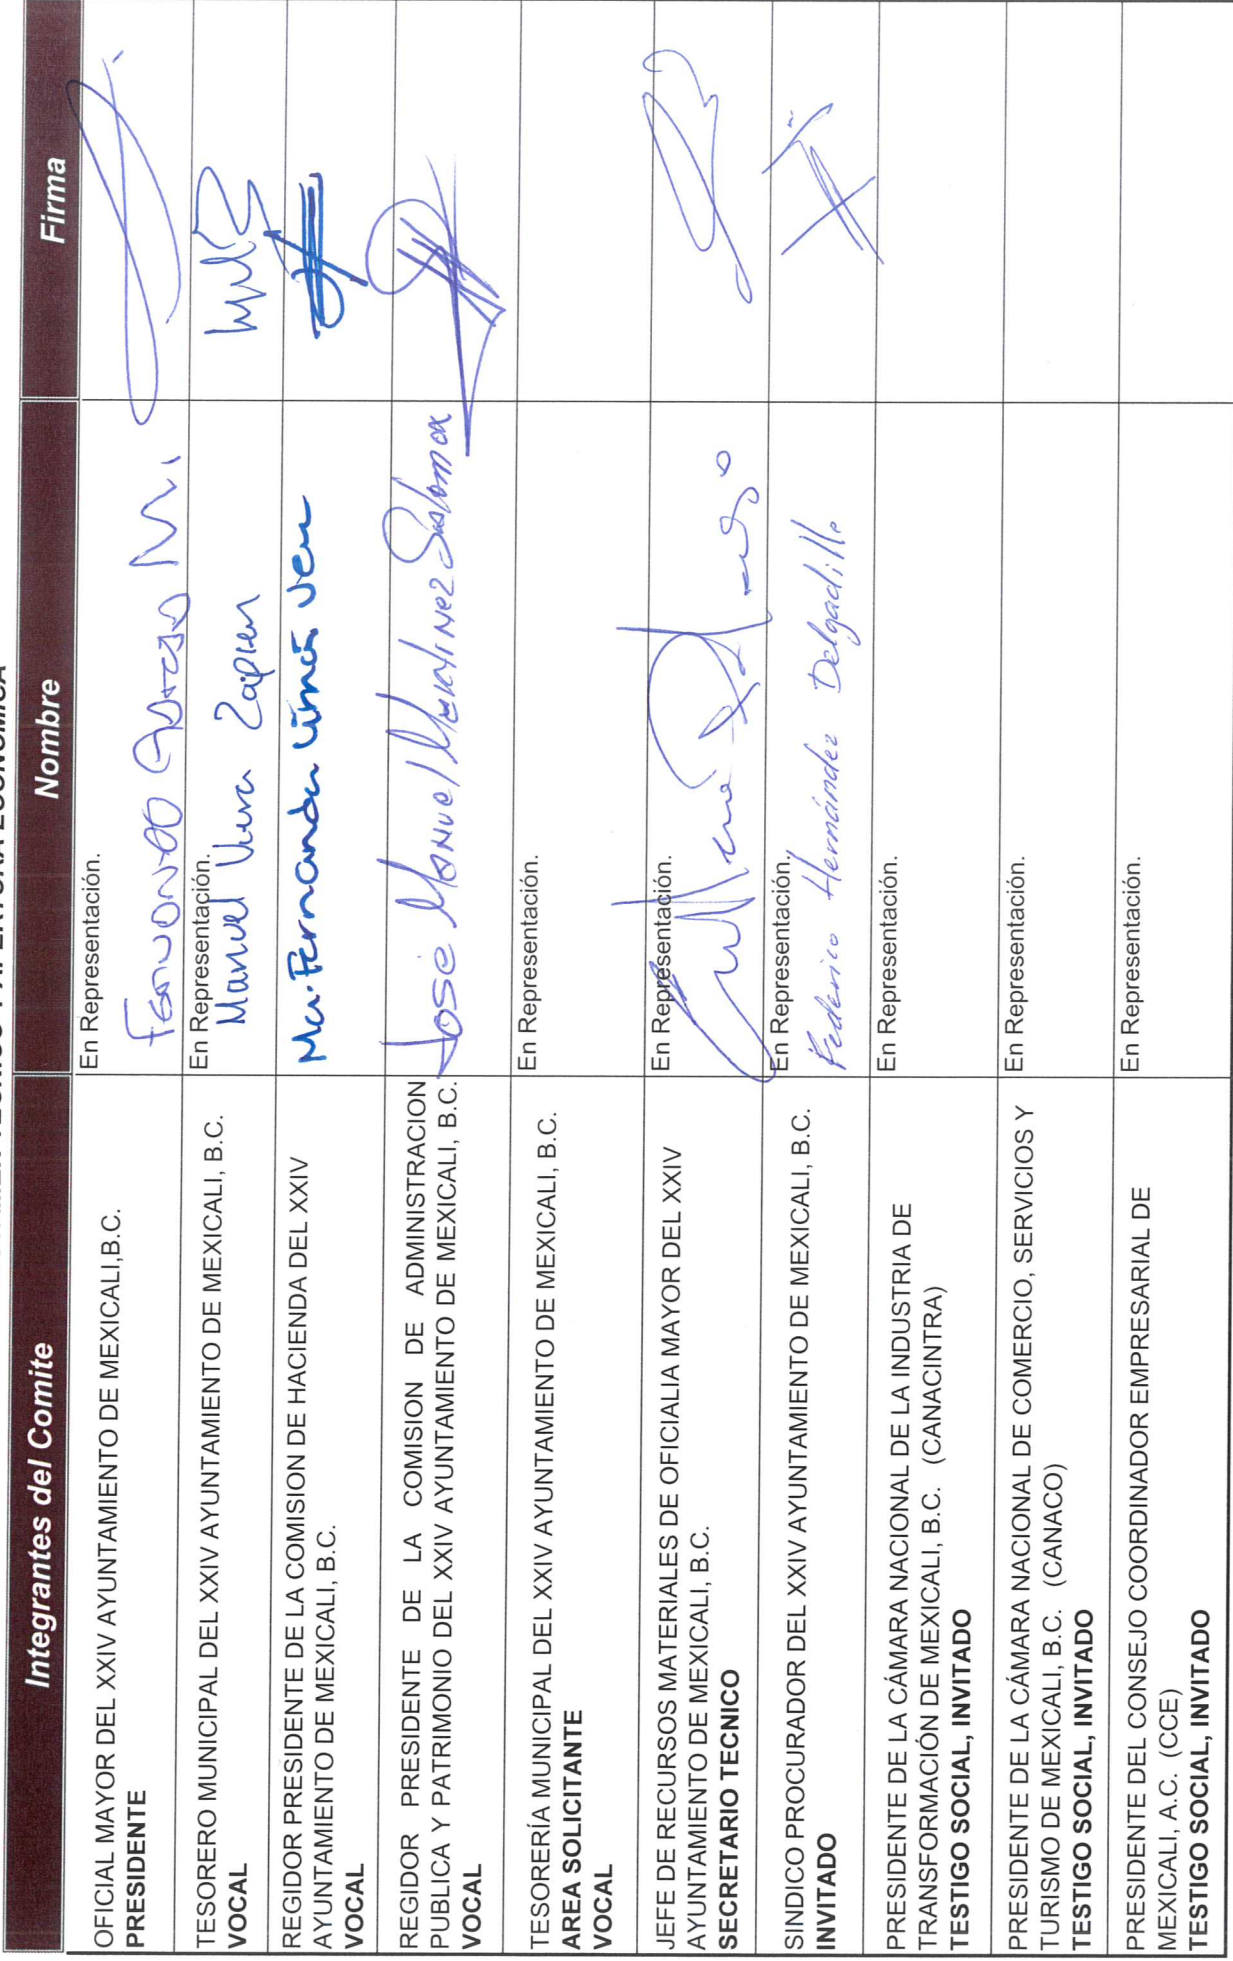 Integrantes del Comite
Nombre
Firma
OFICIAL MAYOR DEL XXIV AYUNTAMIENTO DE MEXICALI,B.C.
PRESIDENTE
En Representación.
TESORERO MUNICIPAL DEL XXIV AYUNTAMIENTO DE MEXICALI, B.C.
VOCAL
En Representación.
Manuel Zapien
REGIDOR PRESIDENTE DE LA COMISION DE HACIENDA DEL XXIV
AYUNTAMIENTO DE MEXICALI, B.C.
VOCAL
Ma. Fernanda
REGIDOR PRESIDENTE DE LA COMISION DE ADMINISTRACION
PUBLICA Y PATRIMONIO DEL XXIV AYUNTAMIENTO DE MEXICALI, B.C.
VOCAL
José Manuel Martinez
TESORERÍA MUNICIPAL DEL XXIV AYUNTAMIENTO DE MEXICALI, B.C.
AREA SOLICITANTE
VOCAL
En Representación.
JEFE DE RECURSOS MATERIALES DE OFICIALIA MAYOR DEL XXIV
AYUNTAMIENTO DE MEXICALI, B.C.
SECRETARIO TECNICO
En Representación.
SINDICO PROCURADOR DEL XXIV AYUNTAMIENTO DE MEXICALI, B.C.
INVITADO
En Representación.
Federico Hernández Delgadillo
PRESIDENTE DE LA CÁMARA NACIONAL DE LA INDUSTRIA DE
TRANSFORMACIÓN DE MEXICALI, B.C. (CANACINTRA)
TESTIGO SOCIAL, INVITADO
En Representación.
PRESIDENTE DE LA CÁMARA NACIONAL DE COMERCIO, SERVICIOS Y
TURISMO DE MEXICALI, B.C. (CANACO)
TESTIGO SOCIAL, INVITADO
En Representación.
PRESIDENTE DEL CONSEJO COORDINADOR EMPRESARIAL DE
MEXICALI, A.C. (CCE)
TESTIGO SOCIAL, INVITADO
En Representación.